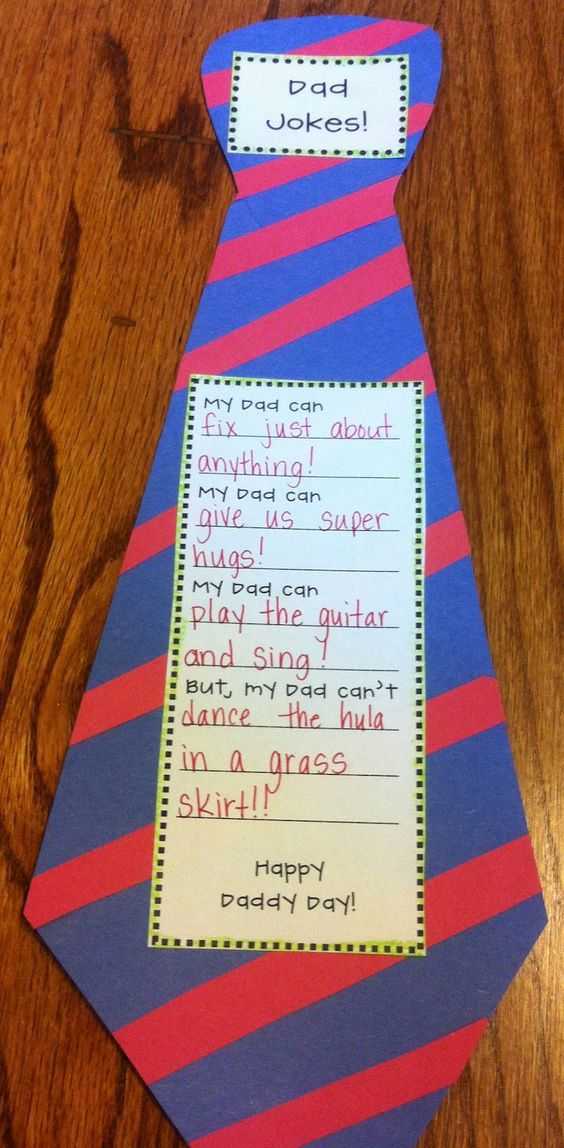 Dad
Jokes!
My Dad can
fix just about
anything!
My Dad can
give us super
hugs!
My Dad can
play the guitar
and sing!
But, my Dad can't
dance the hula
in a grass
skirt!!
Happy
Daddy Day!